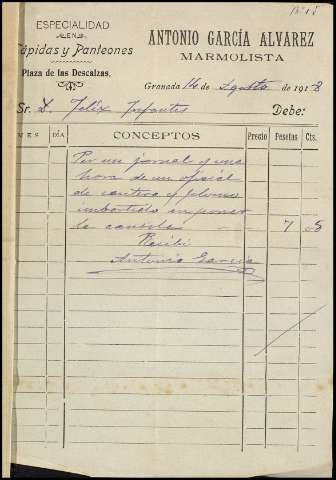 ESPECIALIDAD
EN
Lápidas y Panteones
Plaza de las Descalzas.
ANTONIO GARCÍA ALVAREZ
MARMOLISTA
Granada 14 de Agosto de 1918
Sr. D. Felix Infantes Debe:
MES DÍA CONCEPTOS Precio Pesetas Cts.
Por un jornal y una
hora de un oficial
de cantera y plomo
imbertido en poner
la cancela 7
Recibí
Antonio García